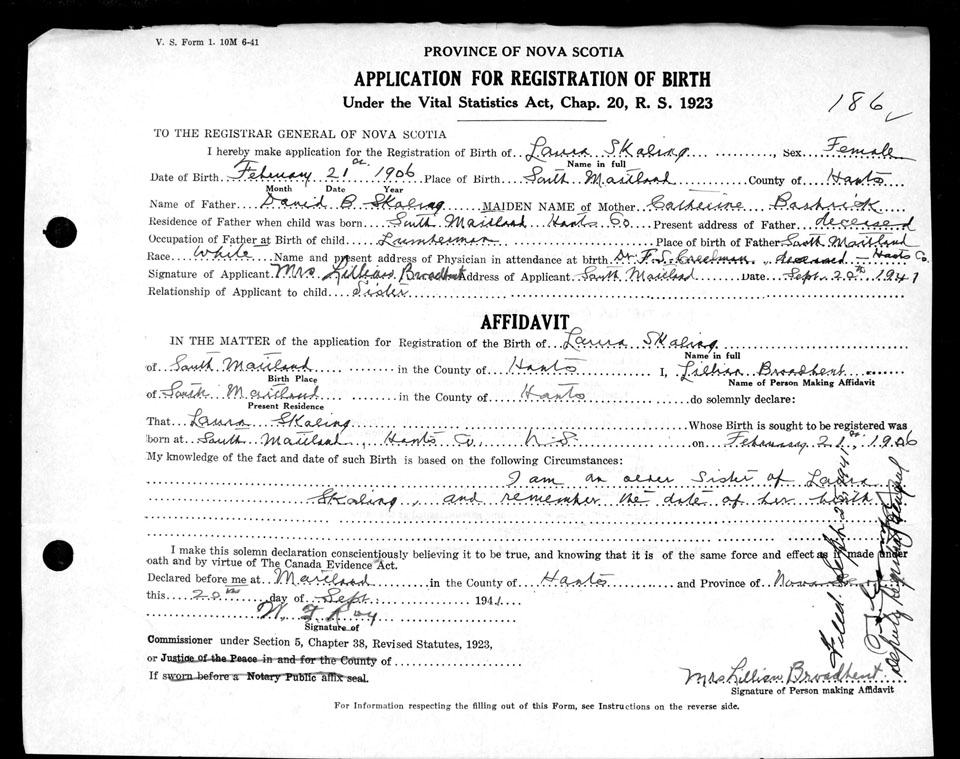 V. S. Form 1. 10M 6-41
PROVINCE OF NOVA SCOTIA
APPLICATION FOR REGISTRATION OF BIRTH
Under the Vital Statistics Act, Chap. 20, R. S. 1923
186
TO THE REGISTRAR GENERAL OF NOVA SCOTIA
I hereby make application for the Registration of Birth of Laura Skaling, Sex Female
Name in full
Date of Birth February 21 1906 Place of Birth South Maitland County of Hants
Month Date Year
Name of Father David B. Skaling MAIDEN NAME of Mother Catherine
Residence of Father when child was born South Maitland Hants Co Present address of Father deceased
Occupation of Father at Birth of child Lumberman Place of birth of Father South Maitland
Race White Name and present address of Physician in attendance at birth Dr F. S. Creelman deceased - Hants Co.
Signature of Applicant Mrs Lillian Broadhent Address of Applicant South Maitland Date Sept. 20th 1941
Relationship of Applicant to child Sister
AFFIDAVIT
IN THE MATTER of the application for Registration of the Birth of Laura Skaling
Name in full
of South Maitland in the County of Hants I, Lillian Broadhent
Birth Place Name of Person Making Affidavit
of South Maitland in the County of Hants do solemnly declare:
Present Residence
That Laura Skaling Whose Birth is sought to be registered was
born at South Maitland, Hants Co, N.S. on February 21, 1906
My knowledge of the fact and date of such Birth is based on the following Circumstances:
I am an older Sister of Laura
Skaling, and remember the date of her birth
I make this solemn declaration conscientiously believing it to be true, and knowing that it is of the same force and effect as if made under
oath and by virtue of The Canada Evidence Act.
Declared before me at Maitland in the County of Hants and Province of Nova Scotia
this 20th day of Sept. 1941
W. F. Roy
Signature of
Commissioner under Section 5, Chapter 38, Revised Statutes, 1923,
or Justice of the Peace in and for the County of
If sworn before a Notary Public affix seal.
Mrs Lillian Broadhent
Signature of Person making Affidavit
For Information respecting the filling out of this Form, see Instructions on the reverse side.
Filed Sept. 1941
Deputy Registrar General